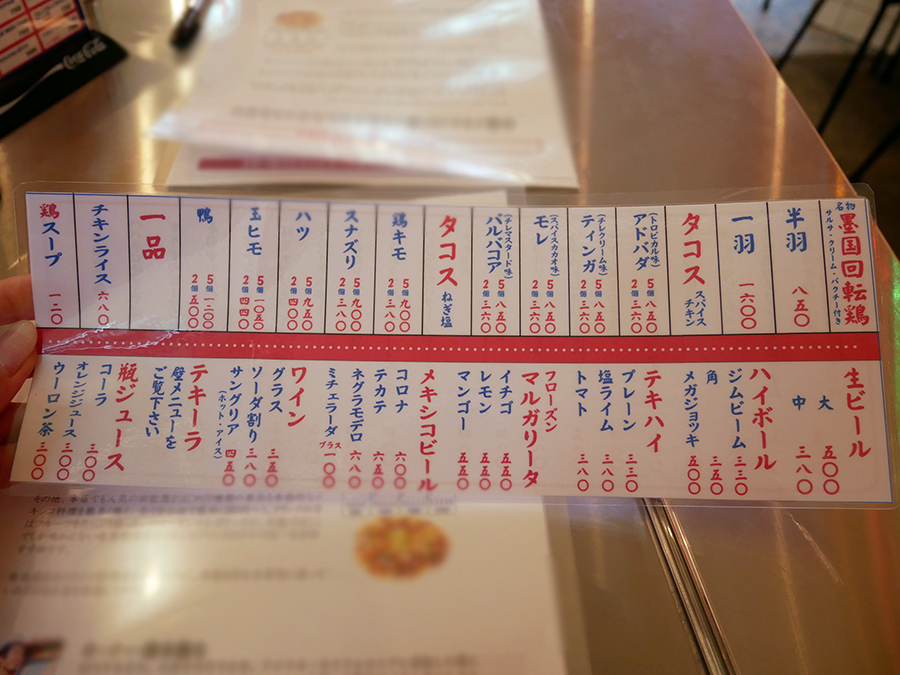 名物
墨国回転鶏
サルサ・クリーム・パクチー付き
半羽 八五〇
一羽 一六〇〇
タコス スパイスチキン
(トロピカル味)
アドバダ
5個 八五〇
2個 三六〇
(チレクリーム味)
ティンガ
5個 八五〇
2個 三六〇
(スパイスカカオ味)
モレ
5個 八五〇
2個 三六〇
(チレマスタード味)
バルバコア
5個 八五〇
2個 三六〇
タコス ねぎ塩
鶏キモ
5個 九〇〇
2個 三八〇
スナズリ
5個 九五〇
2個 三八〇
ハツ
5個 九五〇
2個 四〇〇
玉ヒモ
5個 一〇五〇
2個 四四〇
鴨
5個 一二〇〇
2個 五〇〇
一品
チキンライス 六八〇
鶏スープ 一二〇
生ビール
大 五〇〇
中 三八〇
ハイボール
ジムビーム 三二〇
角 三五〇
メガジョッキ 五〇〇
テキハイ
プレーン 三三〇
塩ライム 三八〇
トマト 三八〇
フローズン
マルガリータ
イチゴ 五五〇
レモン 五五〇
マンゴー 五五〇
メキシコビール
コロナ 六〇〇
テカテ 六五〇
ネグラモデロ 六八〇
ミチェラーダ プラス一〇〇
ワイン
グラス 三五〇
ソーダ割り 三八〇
サングリア 四五〇
(ホット・アイス)
テキーラ
壁メニューを
ご覧下さい
瓶ジュース
コーラ 三〇〇
オレンジジュース 三〇〇
ウーロン茶 三〇〇
Coca-Cola